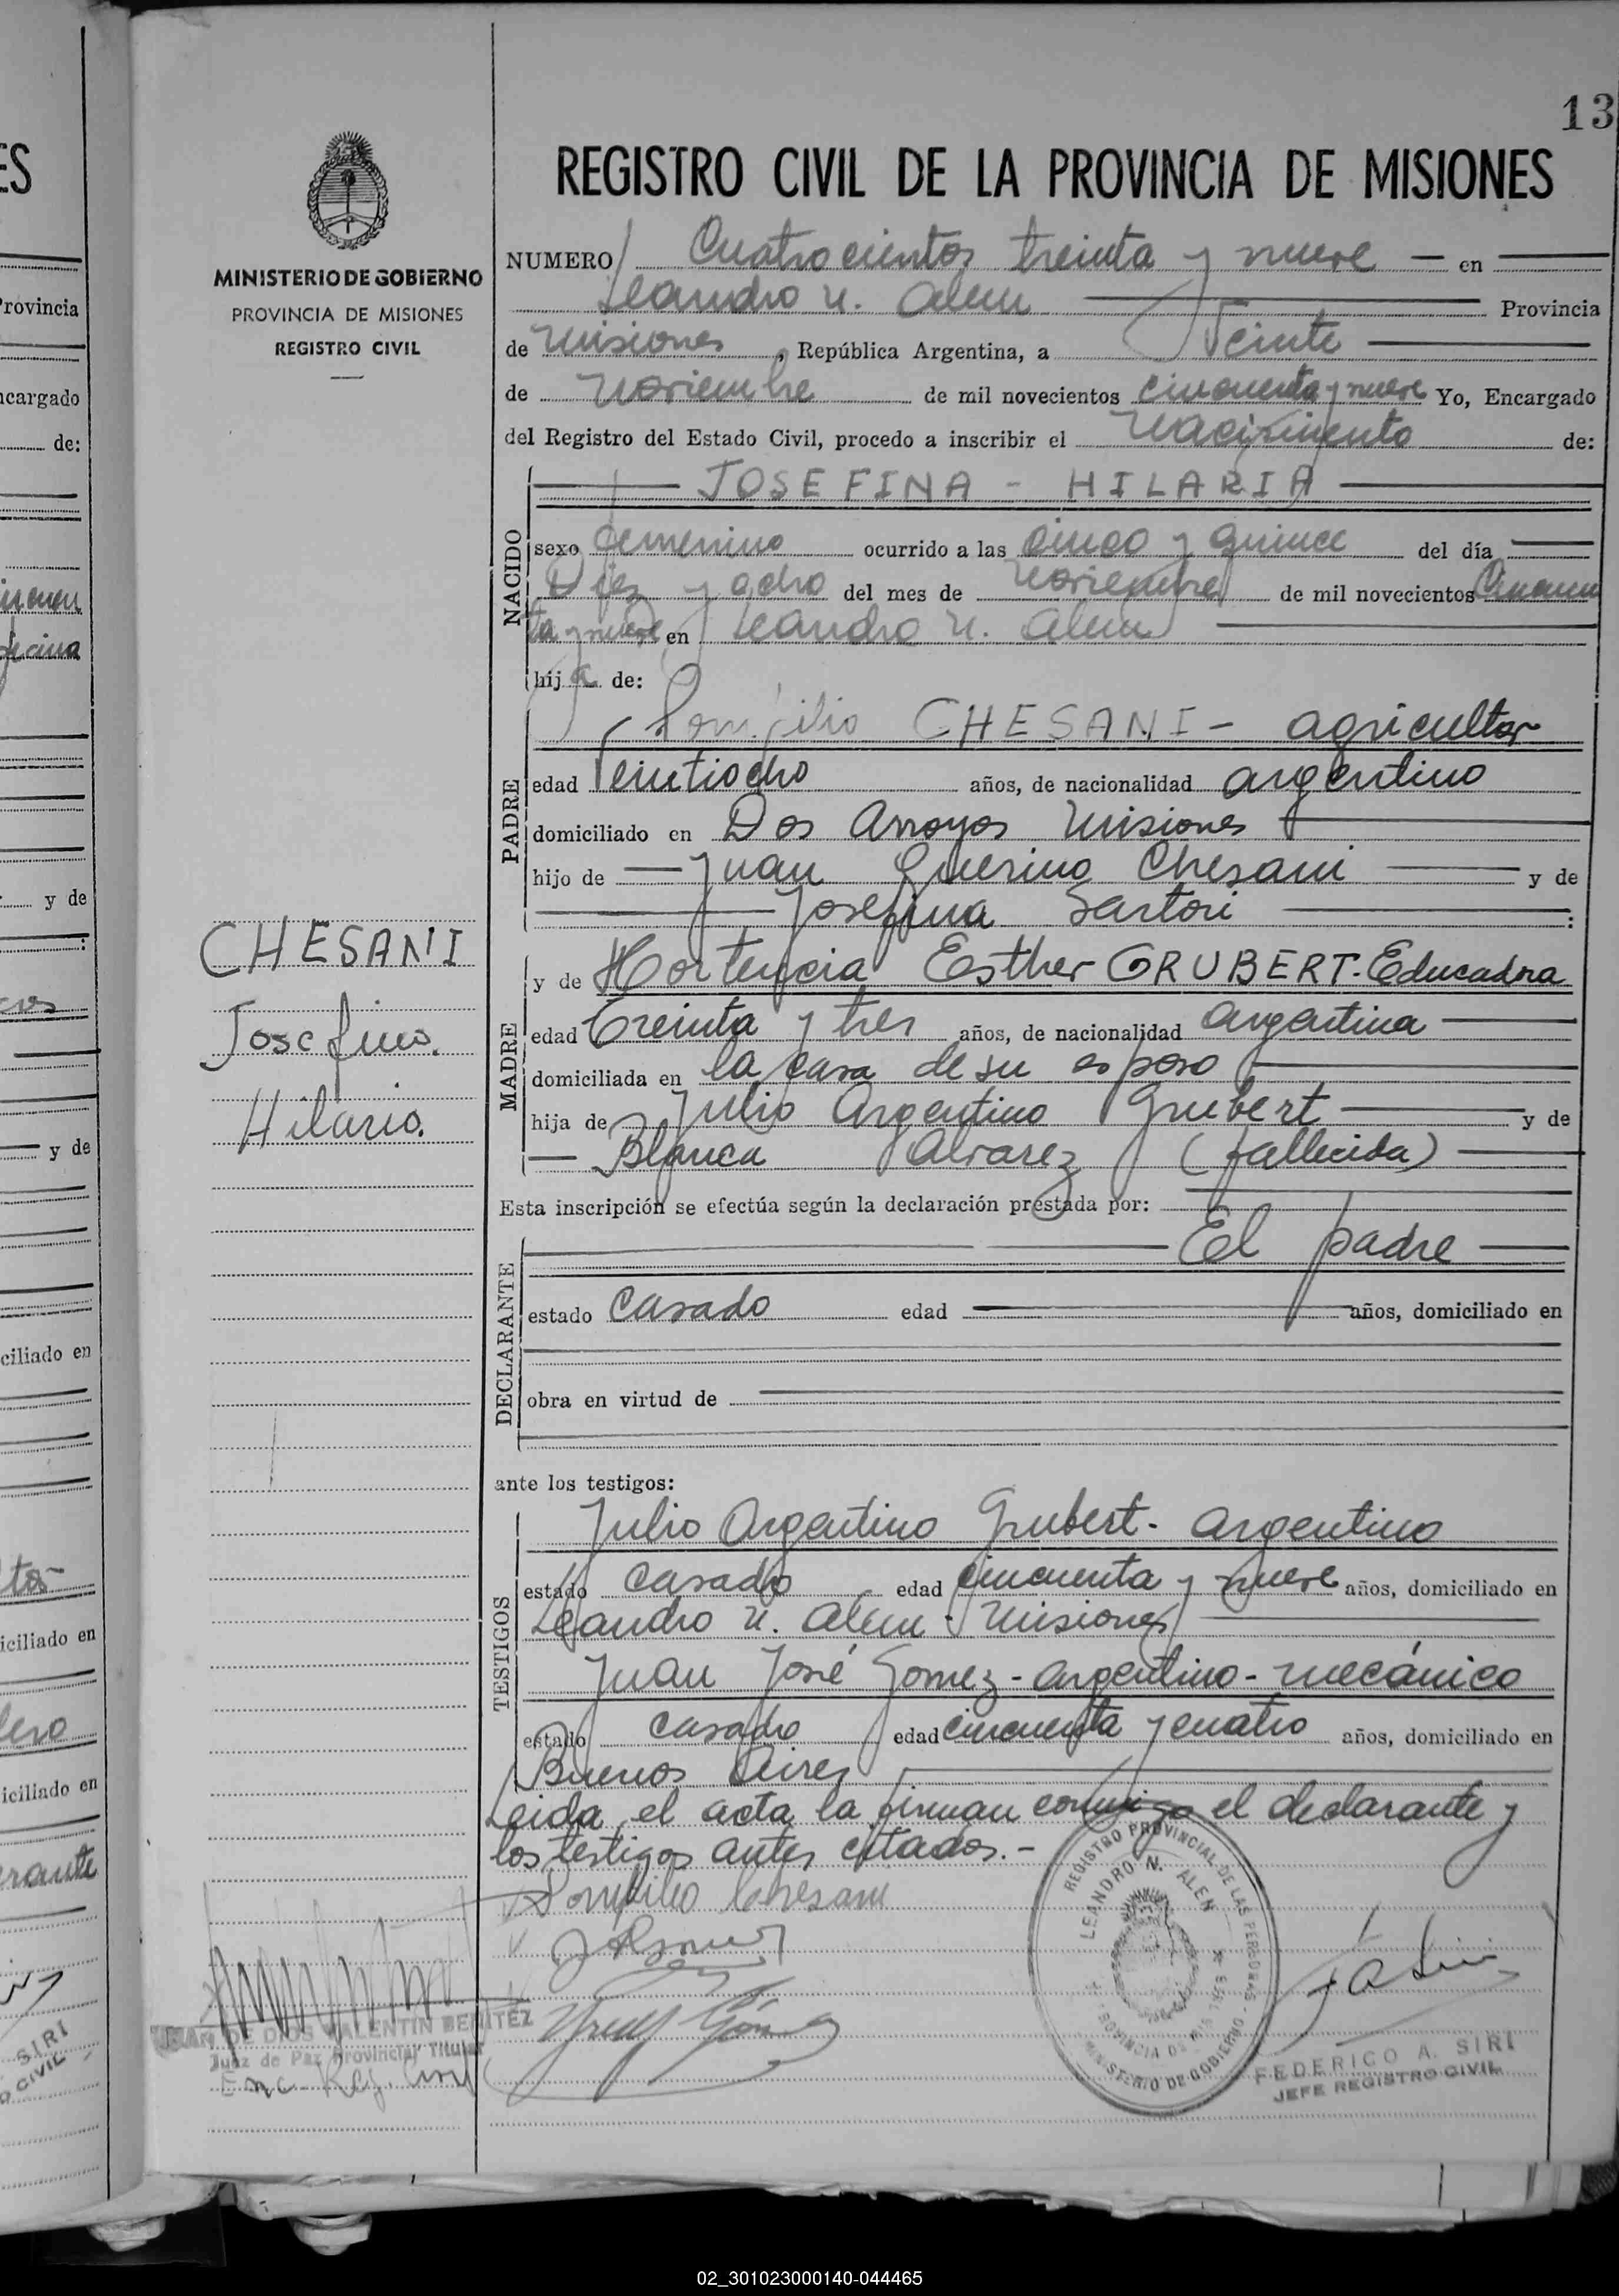 13
REGISTRO CIVIL DE LA PROVINCIA DE MISIONES
MINISTERIO DE GOBIERNO
PROVINCIA DE MISIONES
REGISTRO CIVIL
NUMERO Cuatrocientos treinta y nueve en
Leandro N. Alem Provincia
de Misiones, República Argentina, a Veinte
de Noviembre de mil novecientos cincuenta y nueve Yo, Encargado
del Registro del Estado Civil, procedo a inscribir el Nacimiento de:
NACIDO
JOSEFINA - HILARIA
sexo femenino ocurrido a las cinco y quince del día
Diez y ocho del mes de Noviembre de mil novecientos Cincuen
ta y nueve en Leandro N. Alem
hija de:
PADRE
Pompilio CHESANI - agricultor
edad Veintiocho años, de nacionalidad argentino
domiciliado en Dos Arroyos Misiones
hijo de Juan Querino Chesani y de
Josefina Sartori :
CHESANI
Josefina
Hilaria.
MADRE
y de Hortencia Esther GRUBERT - Educadora
edad Treinta y tres años, de nacionalidad argentina
domiciliada en la casa de su esposo
hija de Julio Argentino Grubert y de
Blanca Alvarez (fallecida)
Esta inscripción se efectúa según la declaración prestada por:
DECLARANTE
El padre
estado casado edad años, domiciliado en
obra en virtud de
ante los testigos:
TESTIGOS
Julio Argentino Grubert - argentino
estado casado edad cincuenta y nueve años, domiciliado en
Leandro N. Alem - Misiones
Juan José Gomez - argentino - mecánico
estado casado edad cincuenta y cuatro años, domiciliado en
Buenos Aires
Leida el acta la firman conmigo el declarante y
los testigos antes citados. -
Pompilio Chesani
REGISTRO PROVINCIAL DE LAS PERSONAS
LEANDRO N. ALEN
PROVINCIA DE MISIONES
MINISTERIO DE GOBIERNO
JUAN DE DIOS VALENTIN BENITEZ
Juez de Paz Provincial Titular
Enc. Reg. Civil
FEDERICO A. SIRI
JEFE REGISTRO CIVIL
02_301023000140-044465